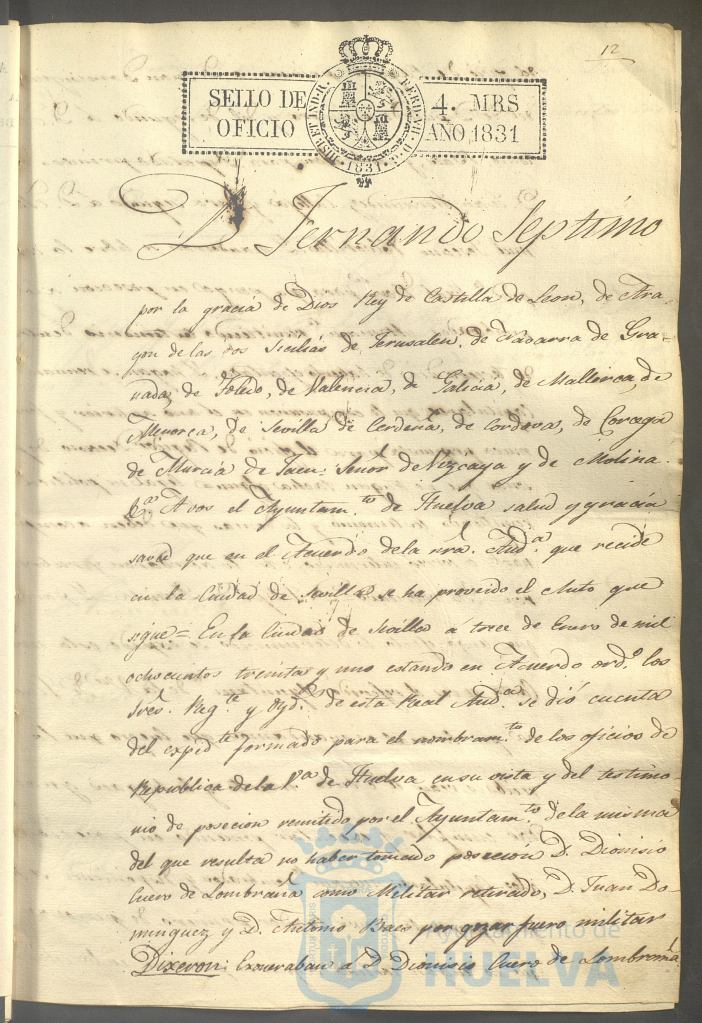 12
SELLO DE OFICIO
HISP. ET IND. R. FERD. VII. D. G. 1831
4. MRS AÑO 1831
D Fernando Septimo
por la gracia de Dios Rey de Castilla de Leon, de Ara-
gon de las dos Sicilias de Jerusalen, de Navarra de Gra-
nada, de Toledo, de Valencia, de Galicia, de Mallorca, de
Menorca, de Sevilla de Cerdeña, de Cordova, de Corcega
de Murcia de Jaen, Señor de Vizcaya y de Molina
&a A vos el Ayuntam.to de Huelva salud y gracia
saved que en el Acuerdo de la nra. Aud.a que recide
en la Ciudad de Sevilla se ha proveido el Auto que
sigue = En la Ciudad de Sevilla á trece de Enero de mil
ochocientos treinta y uno estando en Acuerdo ord.o los
Sres. Reg.te y Oyd.s de esta Real Aud.a se dió cuenta
del exped.te formado para el nombram.to de los oficios de
Republica de la V.a de Huelva en su vista y del testimo-
nio de posecion remitido por el Ayuntam.to de la misma
del que resulta no haber tomado posecion D. Dionisio
Cuero de Lombraña como Militar retirado, D. Juan Do-
minguez y D. Antonio Baes por gozar fuero militar
Dixeron: Exoneraban á D. Dionisio Cuero de Lombraña
Ayuntamiento de
HUELVA